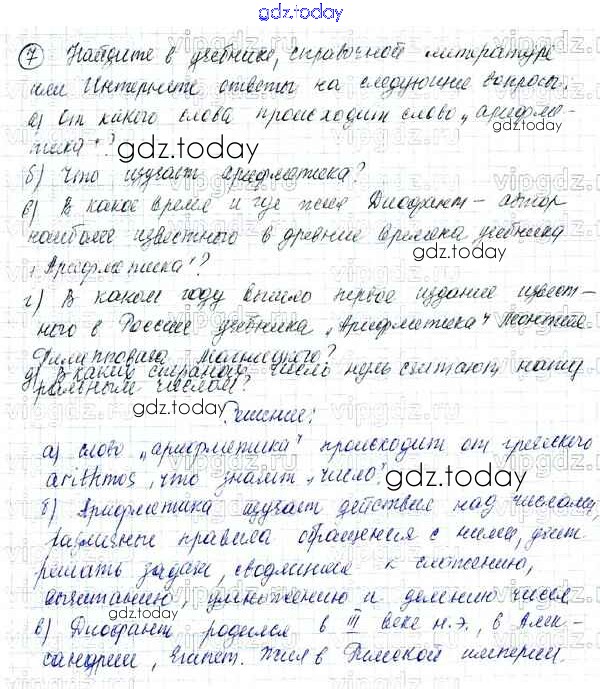 gdz.today
7 Найдите в учебнике, справочной литературе
или Интернете ответы на следующие вопросы.
а) От какого слова происходит слово „арифме-
тика"?
gdz.today
б) Что изучает арифметика?
в) В какое время и где жил Диофант - автор
наиболее известного в древние времена учебника
„Арифметика"?
gdz.today
г) В каком году вышло первое издание извест-
ного в России учебника „Арифметика" Леонтия
Филипповича Магницкого?
д) В каких странах число нуль считают нату
ральным числом?
gdz.today
Решение:
а) слово „арифметика" происходит от греческого
arithmos, что значит „число".
gdz.today
б) Арифметика изучает действия над числами,
различные правила обращения с ними, учит
решать задачи, сводящиеся к сложению,
вычитанию, умножению и делению чисел.
gdz.today
в) Диофант родился в III веке н.э., в Алек-
сандрии, Египет. Жил в Римской империи.
gdz.today